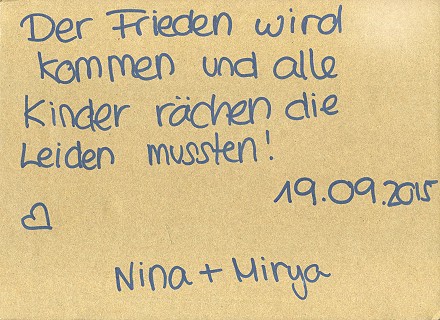 Der Frieden wird
kommen und alle
Kinder rächen die
Leiden mussten!
19.09.2015
Nina + Mirya